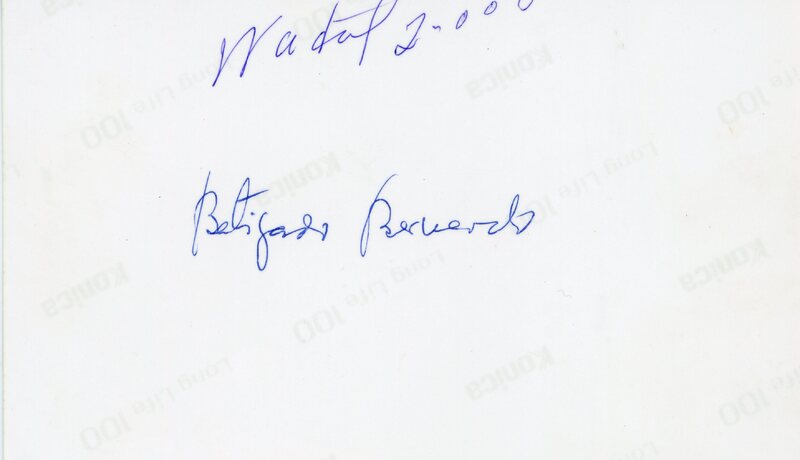 Natal 2-000
Konica
Long Life 100
Bernardo
Konica
Long Life 100
Konica
Long Life 100
Konica
Konica
Long Life 100
Konica
Long Life 100